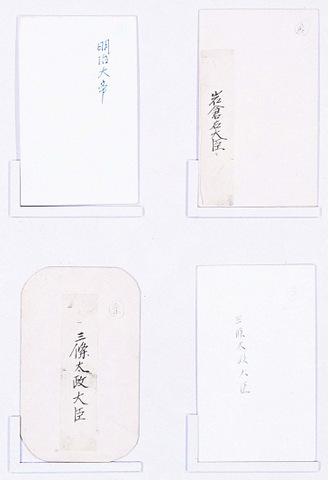 明治大帝
岩倉右大臣
三條太政大臣
三條太政大臣